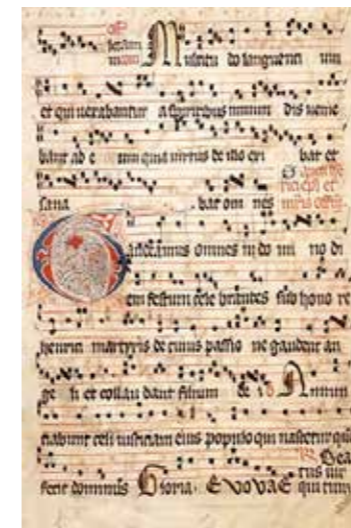 Multitu do languenti um
et qui uexabantur a spiritibus inmun dis uenie
bant ad e um quia uirtus de illo exi bat et
sana bat om nes
Gaudeamus omnes in do mi no di
em festum cele brantes sub hono re
henrici martyris de cuius passio ne gaudent an
ge li et collau dant filium de i Annun
tiabunt celi iusticiam eius populo qui nascetur que
fecit dominus Gloria. EVOVAE Bea tus uir qui timet